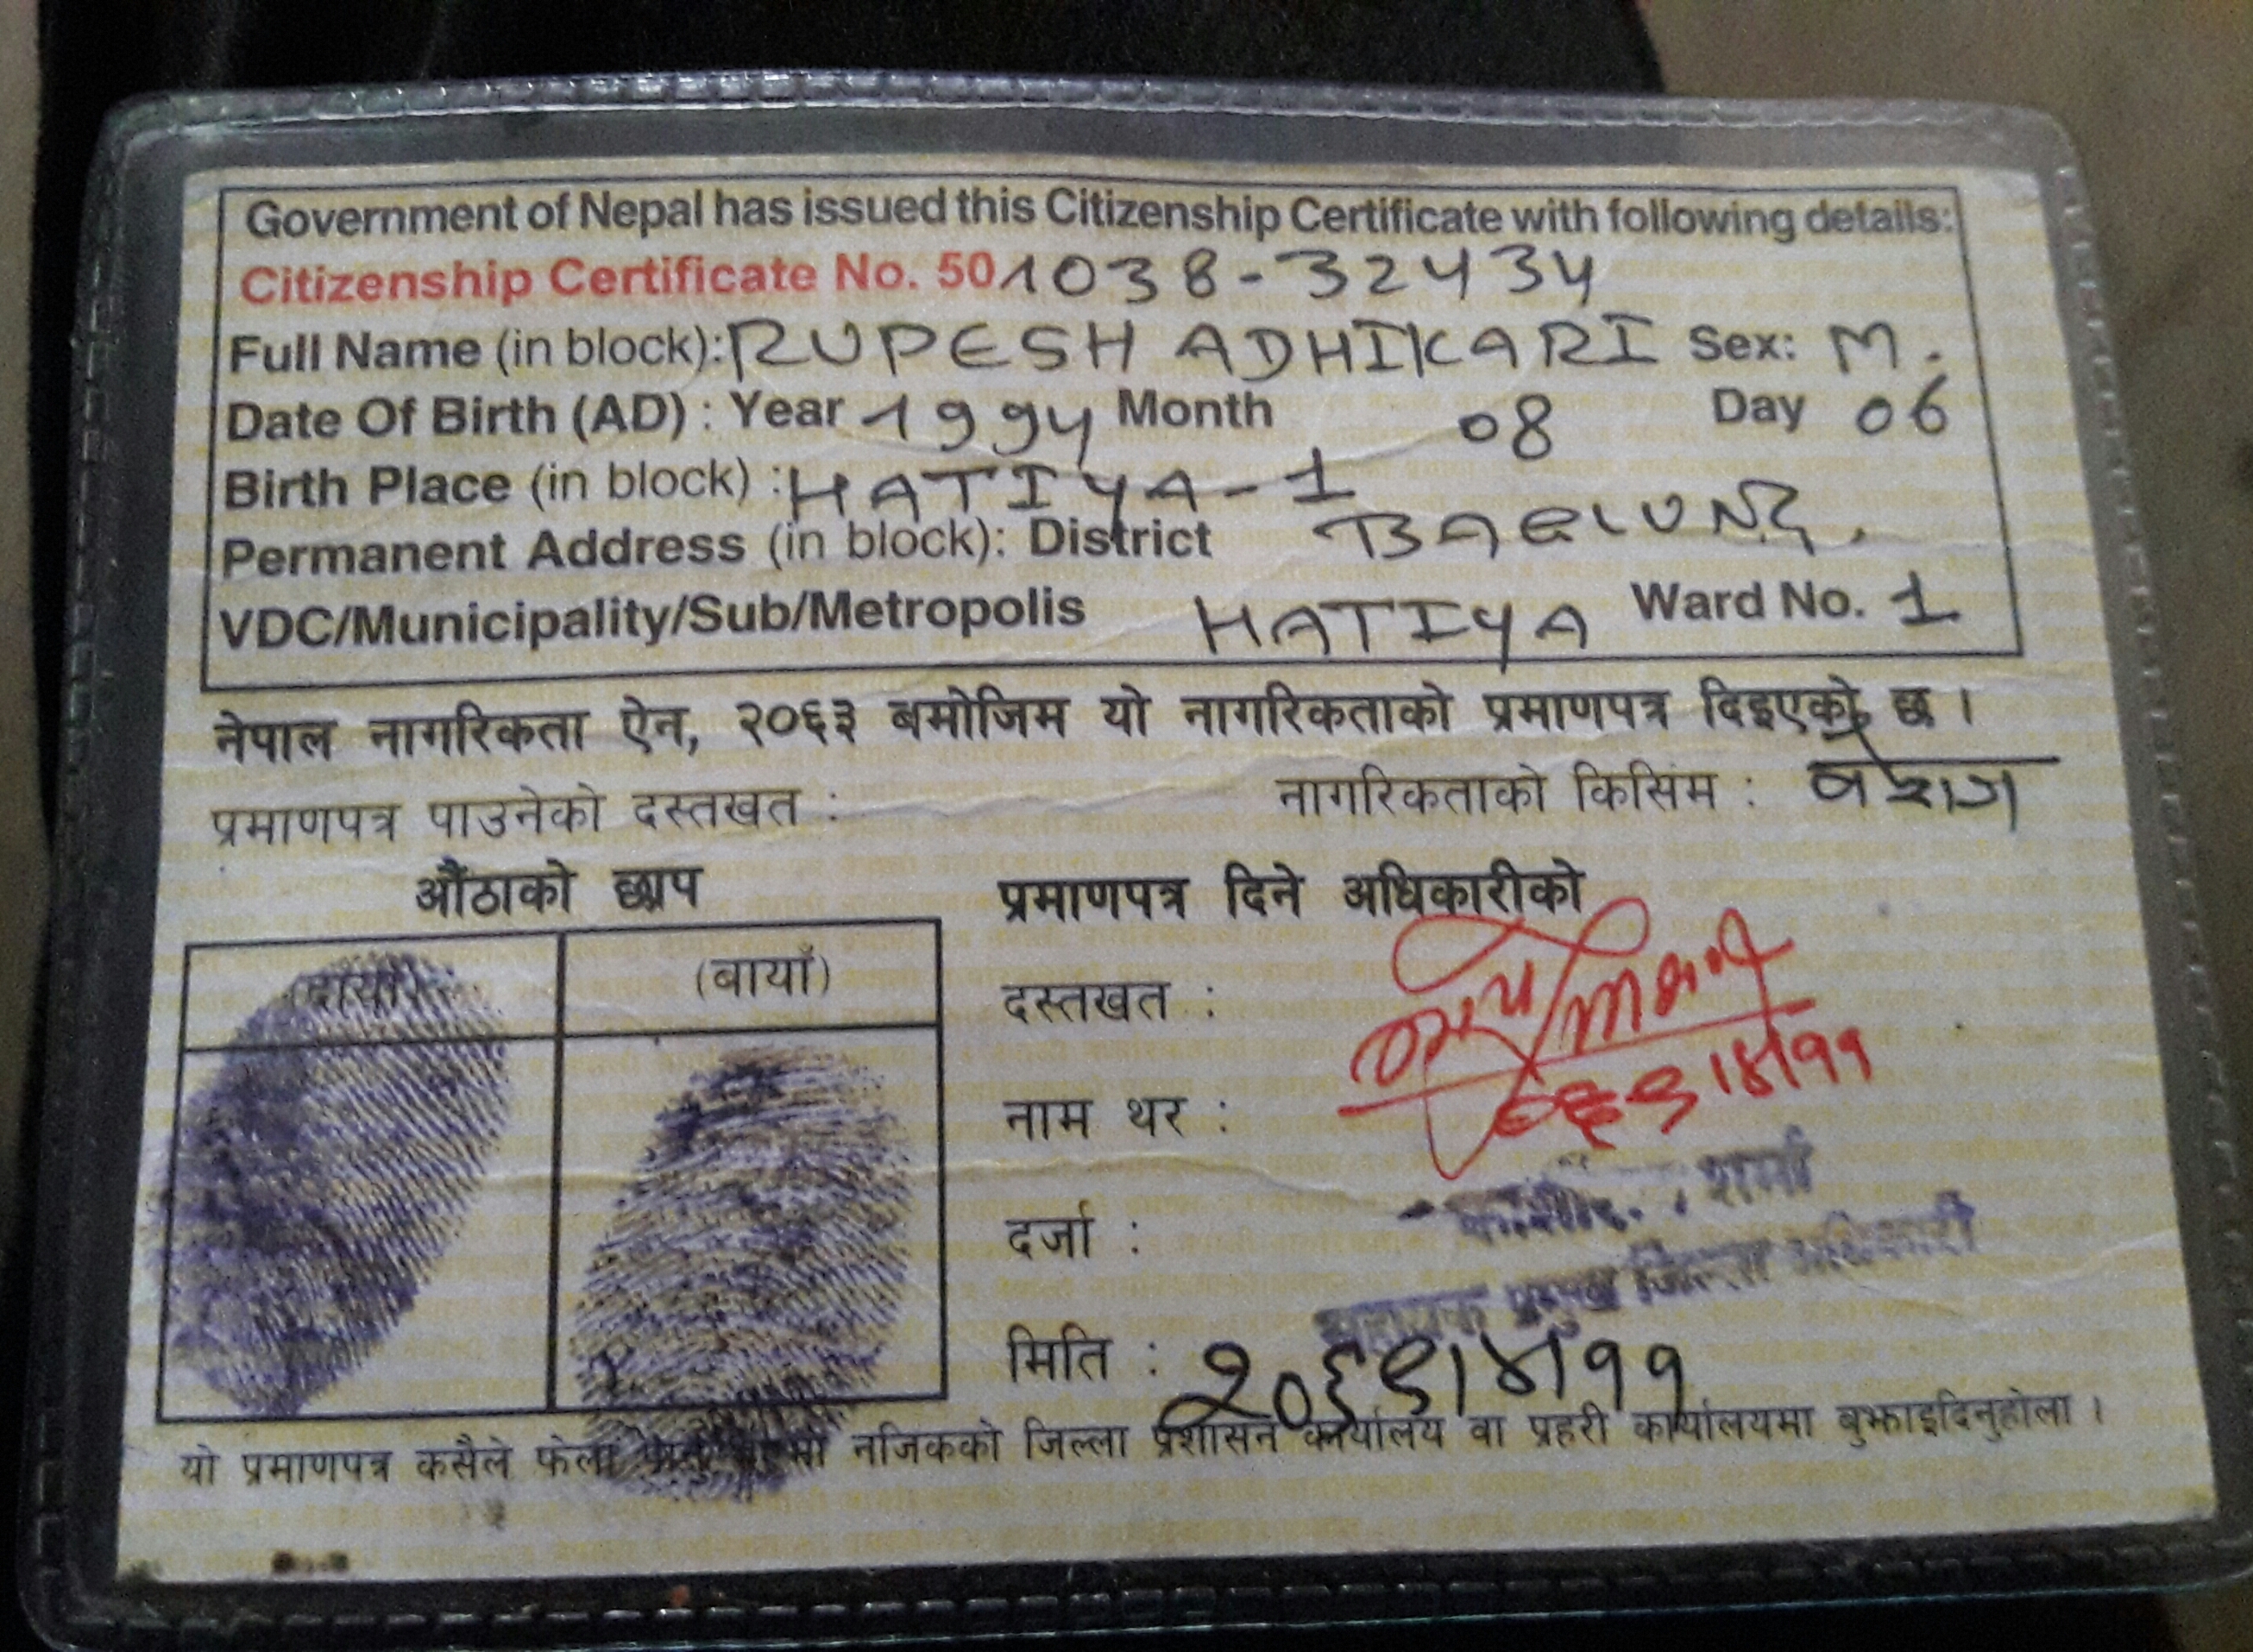 Government of Nepal has issued this Citizenship Certificate with following details:
Citizenship Certificate No. 501038-32434
Full Name (in block): RUPESH ADHIKARI Sex: M.
Date Of Birth (AD) : Year 1994 Month 08 Day 06
Birth Place (in block) : HATIYA-1
Permanent Address (in block): District BAGLUNG.
VDC/Municipality/Sub/Metropolis HATIYA Ward No. 1
नेपाल नागरिकता ऐन, २०६३ बमोजिम यो नागरिकताको प्रमाणपत्र दिइएको छ ।
प्रमाणपत्र पाउनेको दस्तखत : नागरिकताको किसिम : वंशज
औंठाको छाप
(दायाँ) (बायाँ)
प्रमाणपत्र दिने अधिकारीको
दस्तखत :
नाम थर : शर्मा
दर्जा : सहायक प्रमुख जिल्ला अधिकारी
मिति : २०६९।४।११
यो प्रमाणपत्र कसैले फेला नजिकको जिल्ला प्रशासन कार्यालय वा प्रहरी कार्यालयमा बुझाइदिनुहोला ।